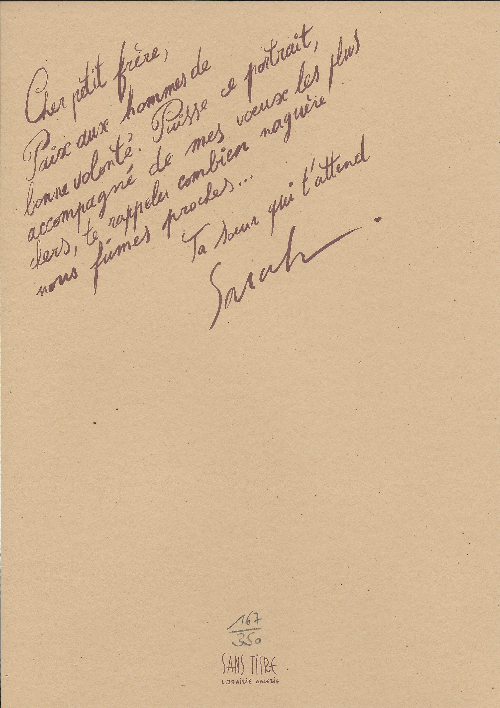 Cher petit frère,
Paix aux hommes de
bonne volonté. Puisse ce portrait,
accompagné de mes vœux les plus
chers, te rappeler combien naguère
nous fûmes proches...
Ta sœur qui t'attend
Sarah
167
350
SANS TITRE
LIBRAIRIE GALERIE